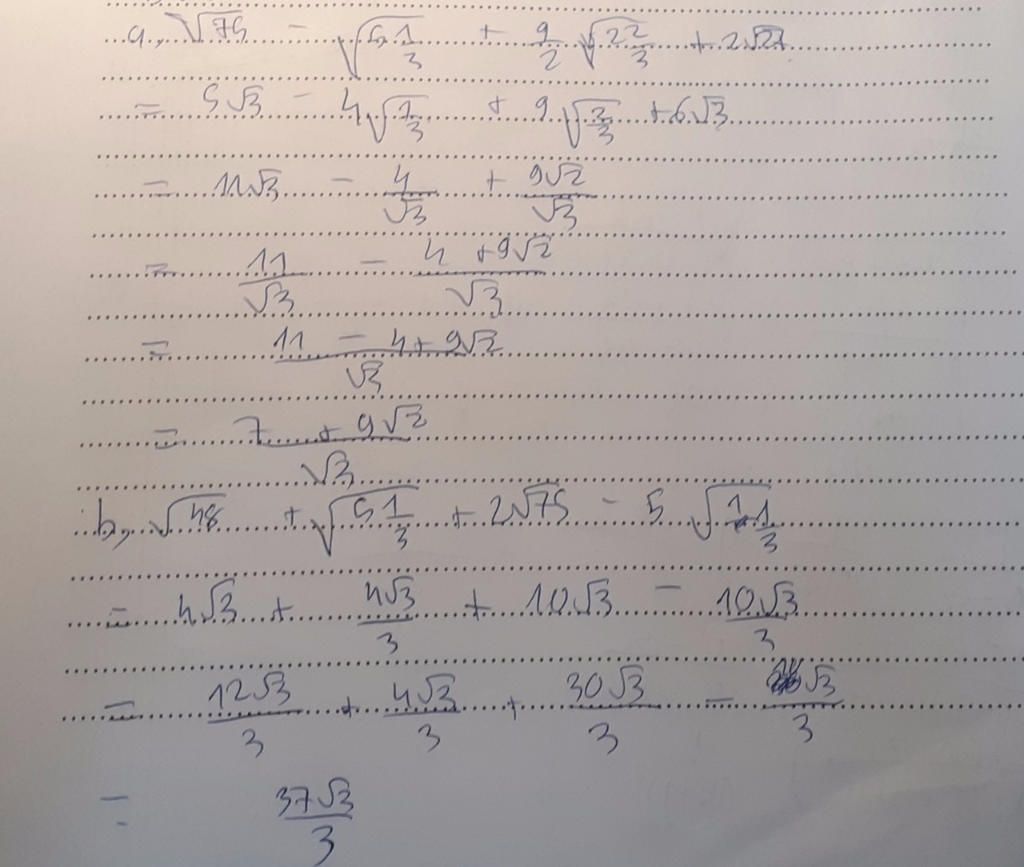 a, √75 - √(5 1/3) + 9/2 √(2 2/3) + 2√27
= 5√3 - 4√(1/3) + 9√(2/3) + 6√3
= 11√3 - 4/√3 + 9√2/√3
= 11/√3 - (4 + 9√2)/√3
= (11 - 4 + 9√2)/√3
= (7 + 9√2)/√3
b, √48 + √(5 1/3) + 2√75 - 5√(1 1/3)
= 4√3 + 4√3/3 + 10√3 - 10√3/3
= 12√3/3 + 4√3/3 + 30√3/3 - √3/3
= 37√3/3